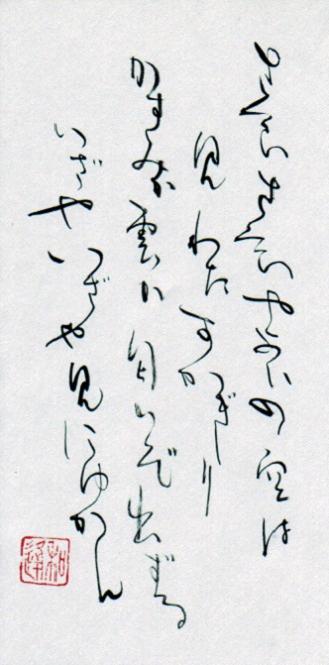 さくらさくらやよひの空は
見わたすかぎり
かすみか雲か匂ひぞ出づる
いざやいざや見にゆかん